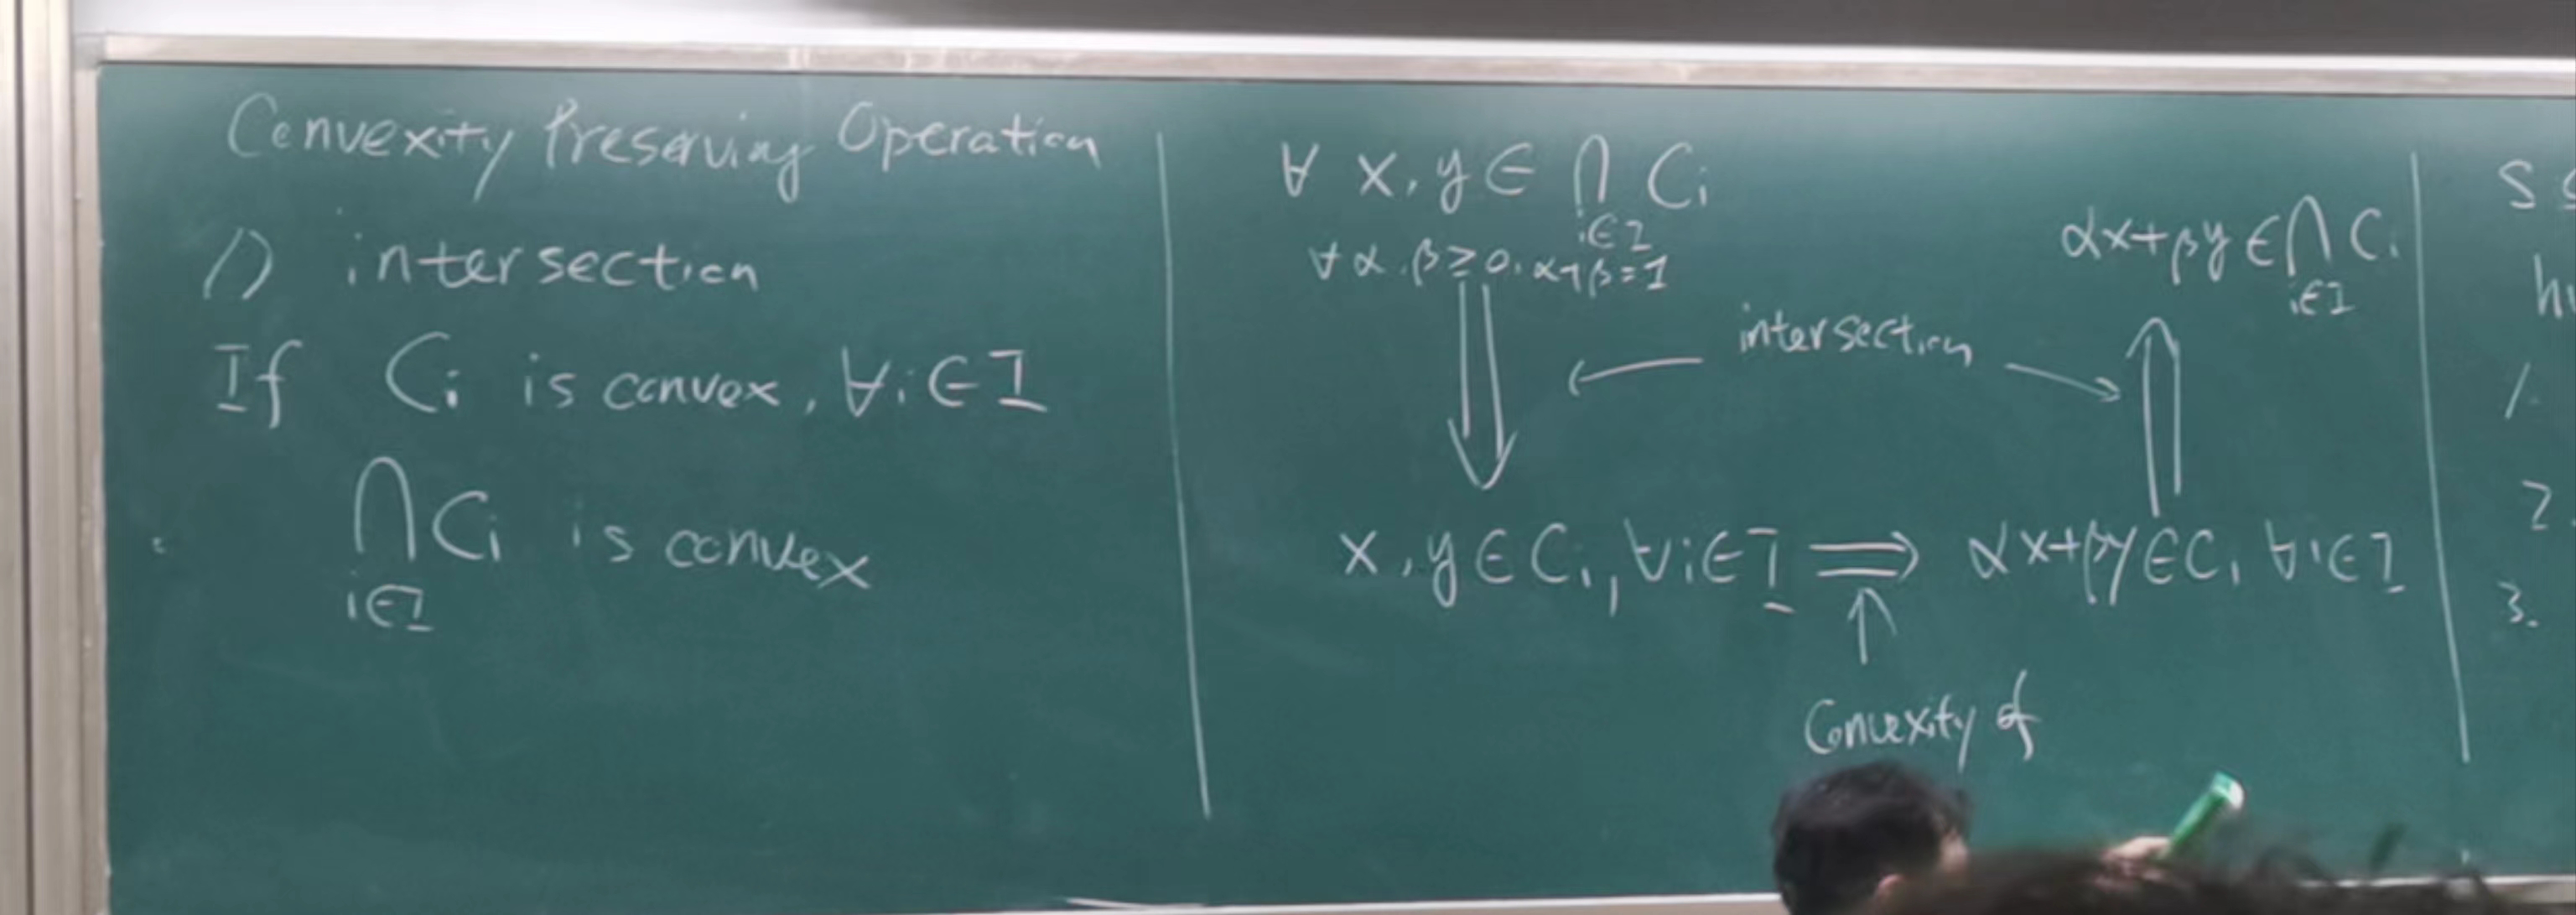 Convexity Preserving Operation
1) intersection
If Ci is convex, ∀i∈I
⋂Ci is convex
i∈I
∀ x, y ∈ ⋂ Ci
i∈I
∀ α, β ≥ 0, α+β=1
intersection
αx+βy ∈ ⋂ Ci
i∈I
x, y ∈ Ci, ∀i∈I ⟹ αx+βy ∈ Ci ∀i∈I
Convexity of
S
1.
2
3.